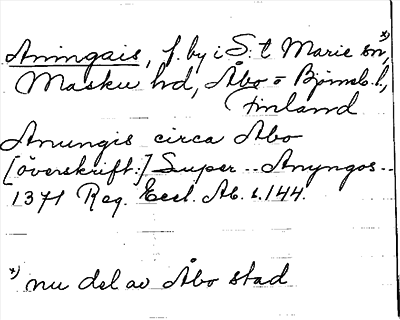 Aningais, f. by i S:t Marie sn,*)
Masku hd, Åbo o Björneb. l.,
Finland
Anungis circa Åbo
[överskrift:] Super -- Anyngos --
1371 Reg. Eccl. Ab. s. 144.
*) nu del av Åbo stad